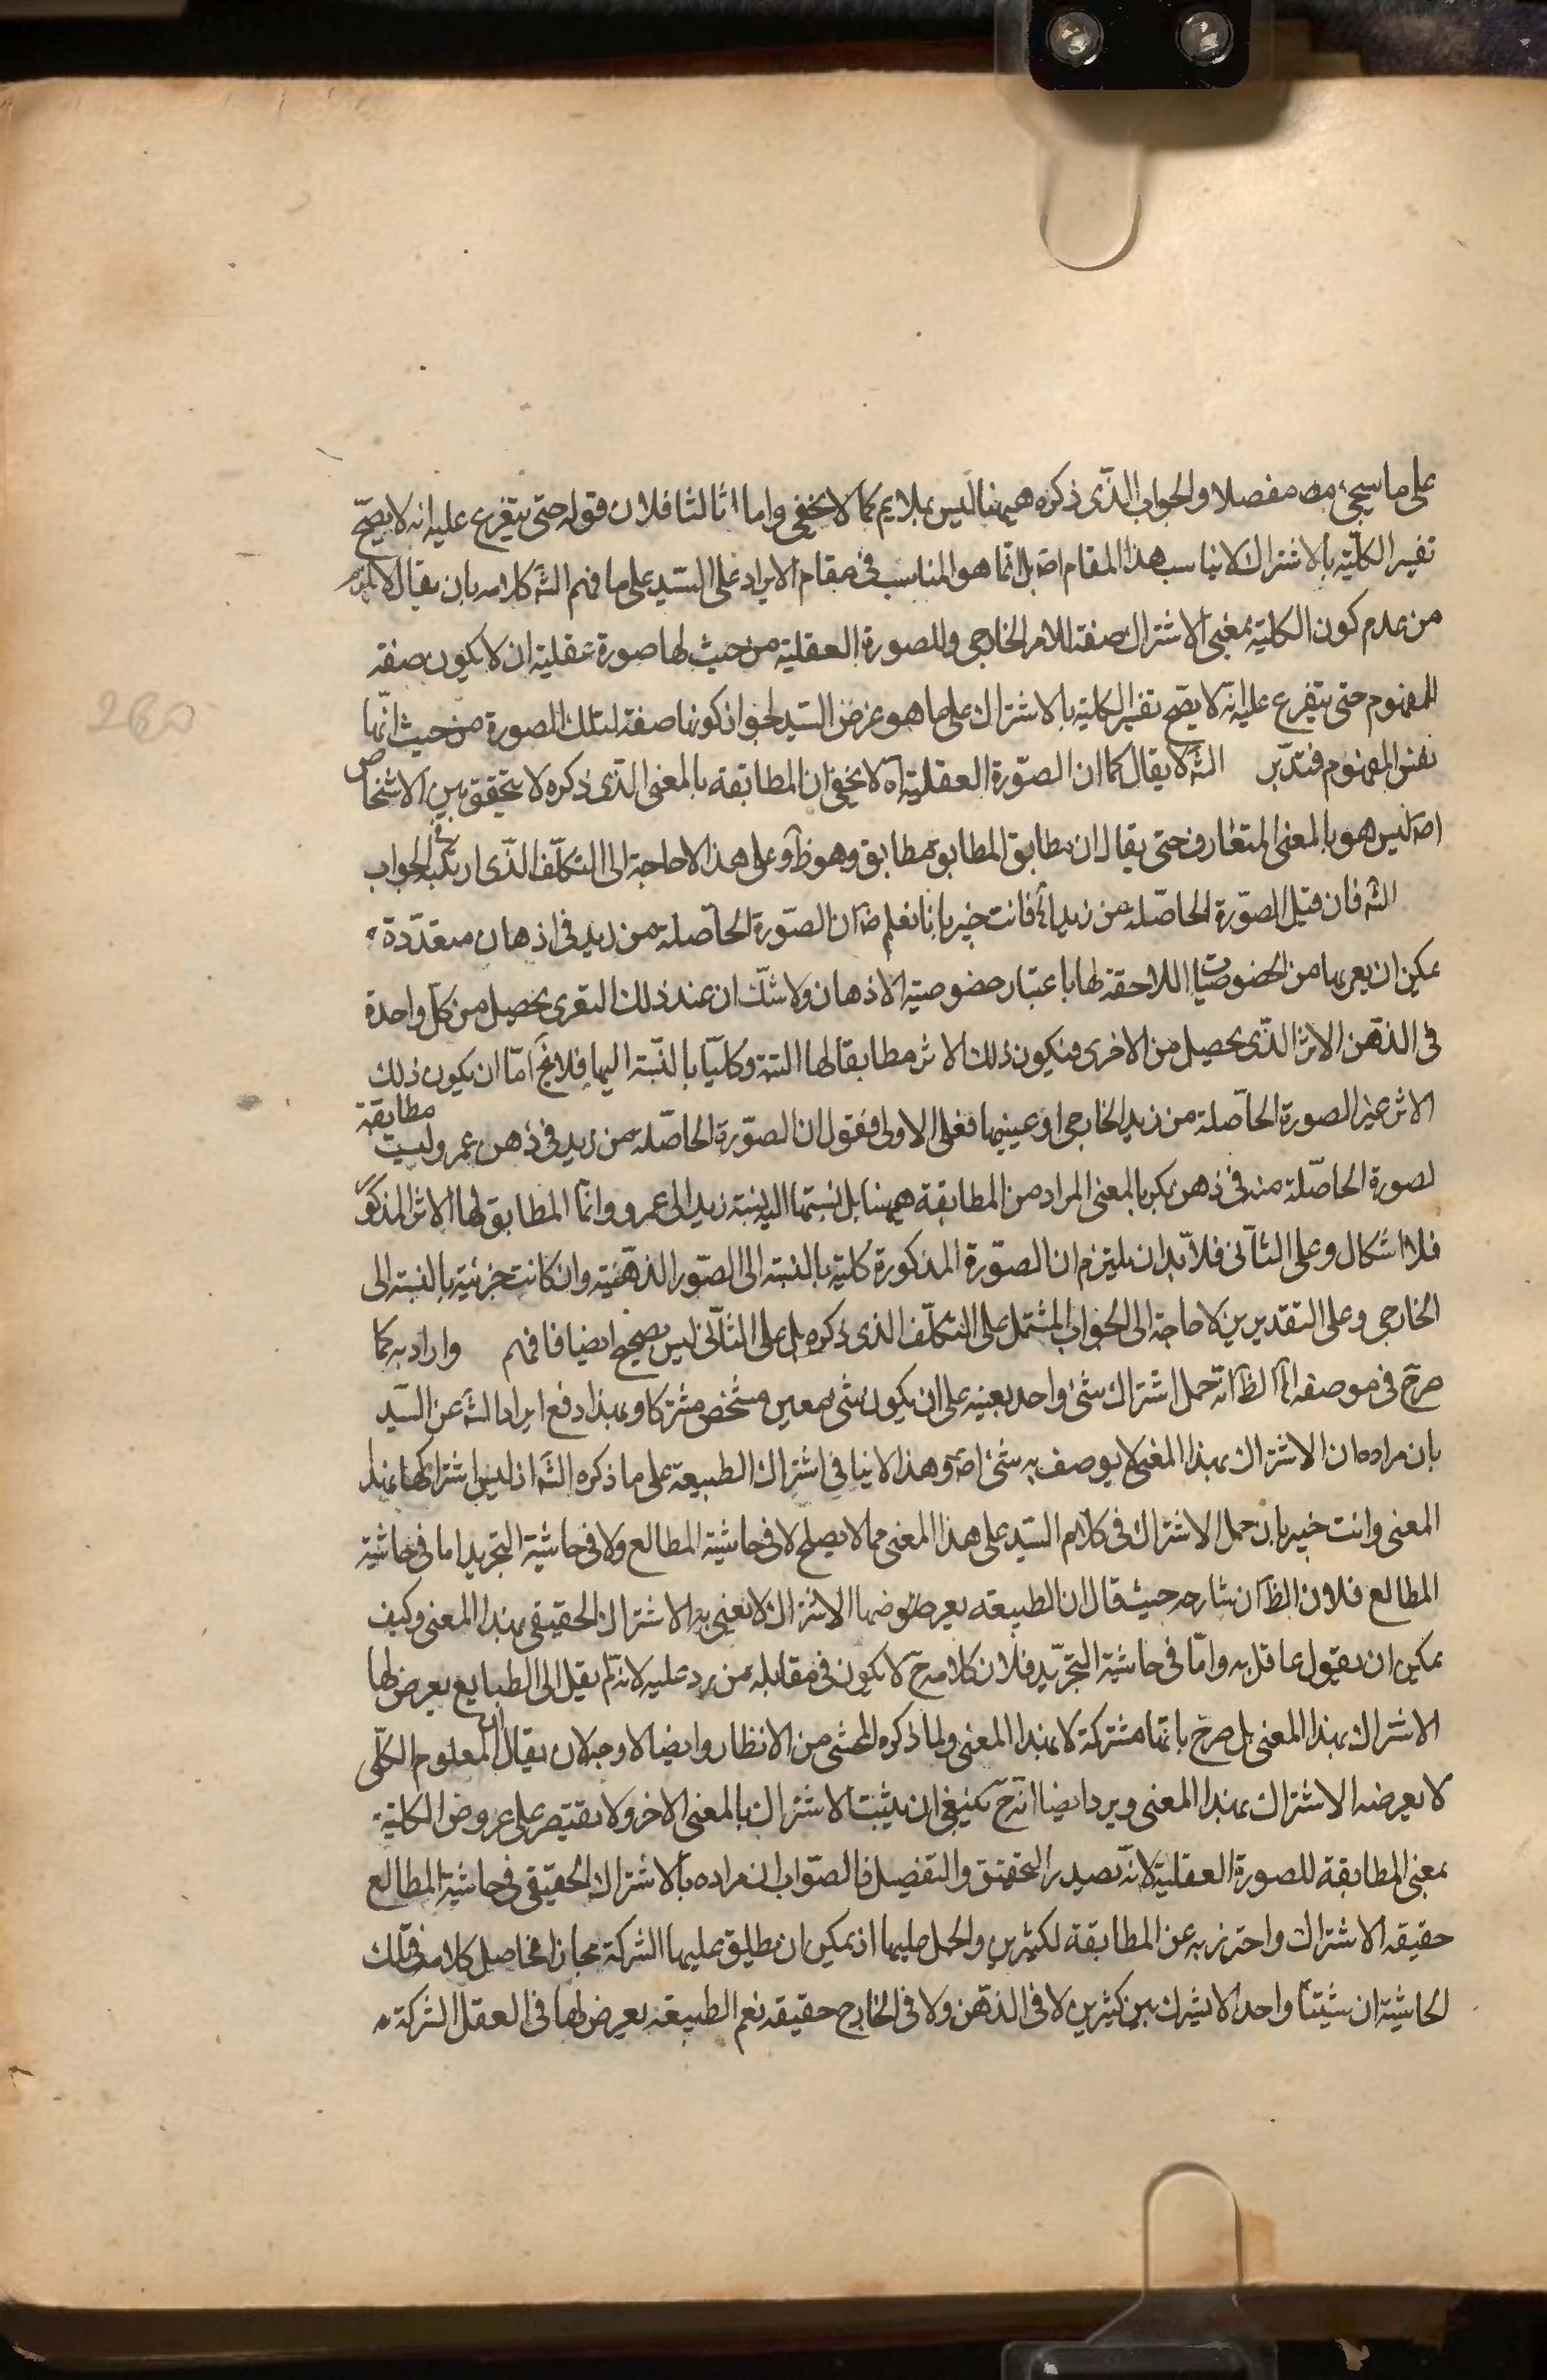 على ما سيجئ منه مفصلا والجواب الذّى ذكره هيهنا ليس بملايم كما لا يخفى واما ثالثا فلان قوله حتى يتفرع عليه انه لا يصحّ
تفسير الكليّة بالاشتراك لا يناسب هذا المقام اصّ بل انّما هو المناسب فى مقام الايراد على السّيد على ما فهم الشّ كلامه بان يقال لا يلزم
من عدم كون الكلية بمعنى الاشتراك صفة للامر الخارجى وللصورة العقلية من حيث لها صورة عقلية ان لا يكون صفة
للمفهوم حتى يتفرع عليه انّه لا يصحّ تفسير الكلية بالاشتراك على ما هو غرض السّيد لجواز كونها صفة لتلك الصورة من حيث انّها
نفس المفهوم فتدبّر الشّ لا يقال كما ان الصّورة العقلية آه لا يخفى ان المطابقة بالمعنى الذّى ذكره لا يتحقق بين الاشخاص
اصّ ليس هو بالمعنى المتعارف حتى يقال ان مطابق المطابق مطابق وهو ظّ وعلى هذا لا حاجة الى التكلّف الذّى ارتكبه فى الجواب
الشّ فان قيل الصّورة الحاصّلة من زيد آه فانت خبير بانا نعلم ضّ ان الصّورة الحاصّلة من زيد فى اذهان متعدّدة
يمكن ان يعريها من الخصوصيات اللاحقة لها باعتبار خصوصية الاذهان ولا شكّ ان عند ذلك التعرى يحصل من كلّ واحدة
فى الذهّن الاثر الذّى يحصل من الاخرى فيكون ذلك الاثر مطابقا لها البتة وكليّا بالنّسبة اليها فلا يخّ امّا ان يكون ذلك
الاثر غير الصورة الحاصّلة من زيد الخارجى او عينها فعلى الاول فنقول ان الصّورة الحاصّلة من زيد فى ذهن عمرو ليست مطابقة
لصورة الحاصّلة منه فى ذهن بكر بالمعنى المراد من المطابقة هيهنا بل نسبتها اليه نسبة زيد الى عمرو وانّما المطابق لها الاثر المذكور
فلا اشكال وعلى الثّانى فلا بّد ان يلتزم ان الصّورة المذكورة كلية بالنسبة الى الصّور الذهّنية وان كانت جزئية بالنسبة الى
الخارجى وعلى التقديرين لا حاجة الى الجواب المشتمل على التكلّف الذى ذكره بل على الثّانى ليس بصحيح ايضا فافهم واراد به كما
صرّح فى موضعه آه الظّ انّه حمل اشتراك شئ واحد بعينه على ان يكون شئ معين مشخّص مشتركا وبهذا دفع ايراد الشّ عن السّيد
بان مراده ان الاشتراك بهذا المعنى لا يوصف به شئ اصّ وهذا لا ينافى اشتراك الطبيعة على ما ذكره الشّ اذ ليس اشتراكها بهذا
المعنى وانت خبير بان حمل الاشتراك فى كلام السّيد على هذا المعنى مما لا يصلح لا فى حاشية المطالع ولا فى حاشية التجريد اما فى حاشية
المطالع فلان الظّ ان شارحه حيث قال ان الطبيعة يعرضها الاشتراك لا يعنى به الاشتراك الحقيقى بهذا المعنى وكيف
يمكن ان يقول عاقل به وامّا فى حاشية التجرّيد فلان كلامه حّ لا يكون فى مقابله من يرد عليه لانه لم يقل الى الطبايع يعرض لها
الاشتراك بهذا المعنى بل صرح بانّها مشتركة لا بهذا المعنى ولما ذكره المحشى من الانظار وايضا لا وجه لان يقال ان المعلوم الكلّى
لا يعرضه الاشتراك بهذا المعنى ويرد ايضا انّه حّ ينبغى ان يثبت الاشتراك بالمعنى الاخر ولا يقتصر على عروض الكلية
بمعنى المطابقة للصورة العقلية لانّه بصدد التحقيق والتفصيل فالصّواب ان مراده بالاشتراك الحقيقى فى حاشية المطالع
حقيقة الاشتراك واحترز به عن المطابقة لكثيرين والحمل عليها اذ يمكن ان يطلق عليها الشركة مجازا فحاصل كلامه فى تلك
الحاشية ان شيئا واحدا لا يشترك بين كثيرين لا فى الذهّن ولا فى الخارج حقيقة نعم الطبيعة يعرض لها فى العقل الشركة